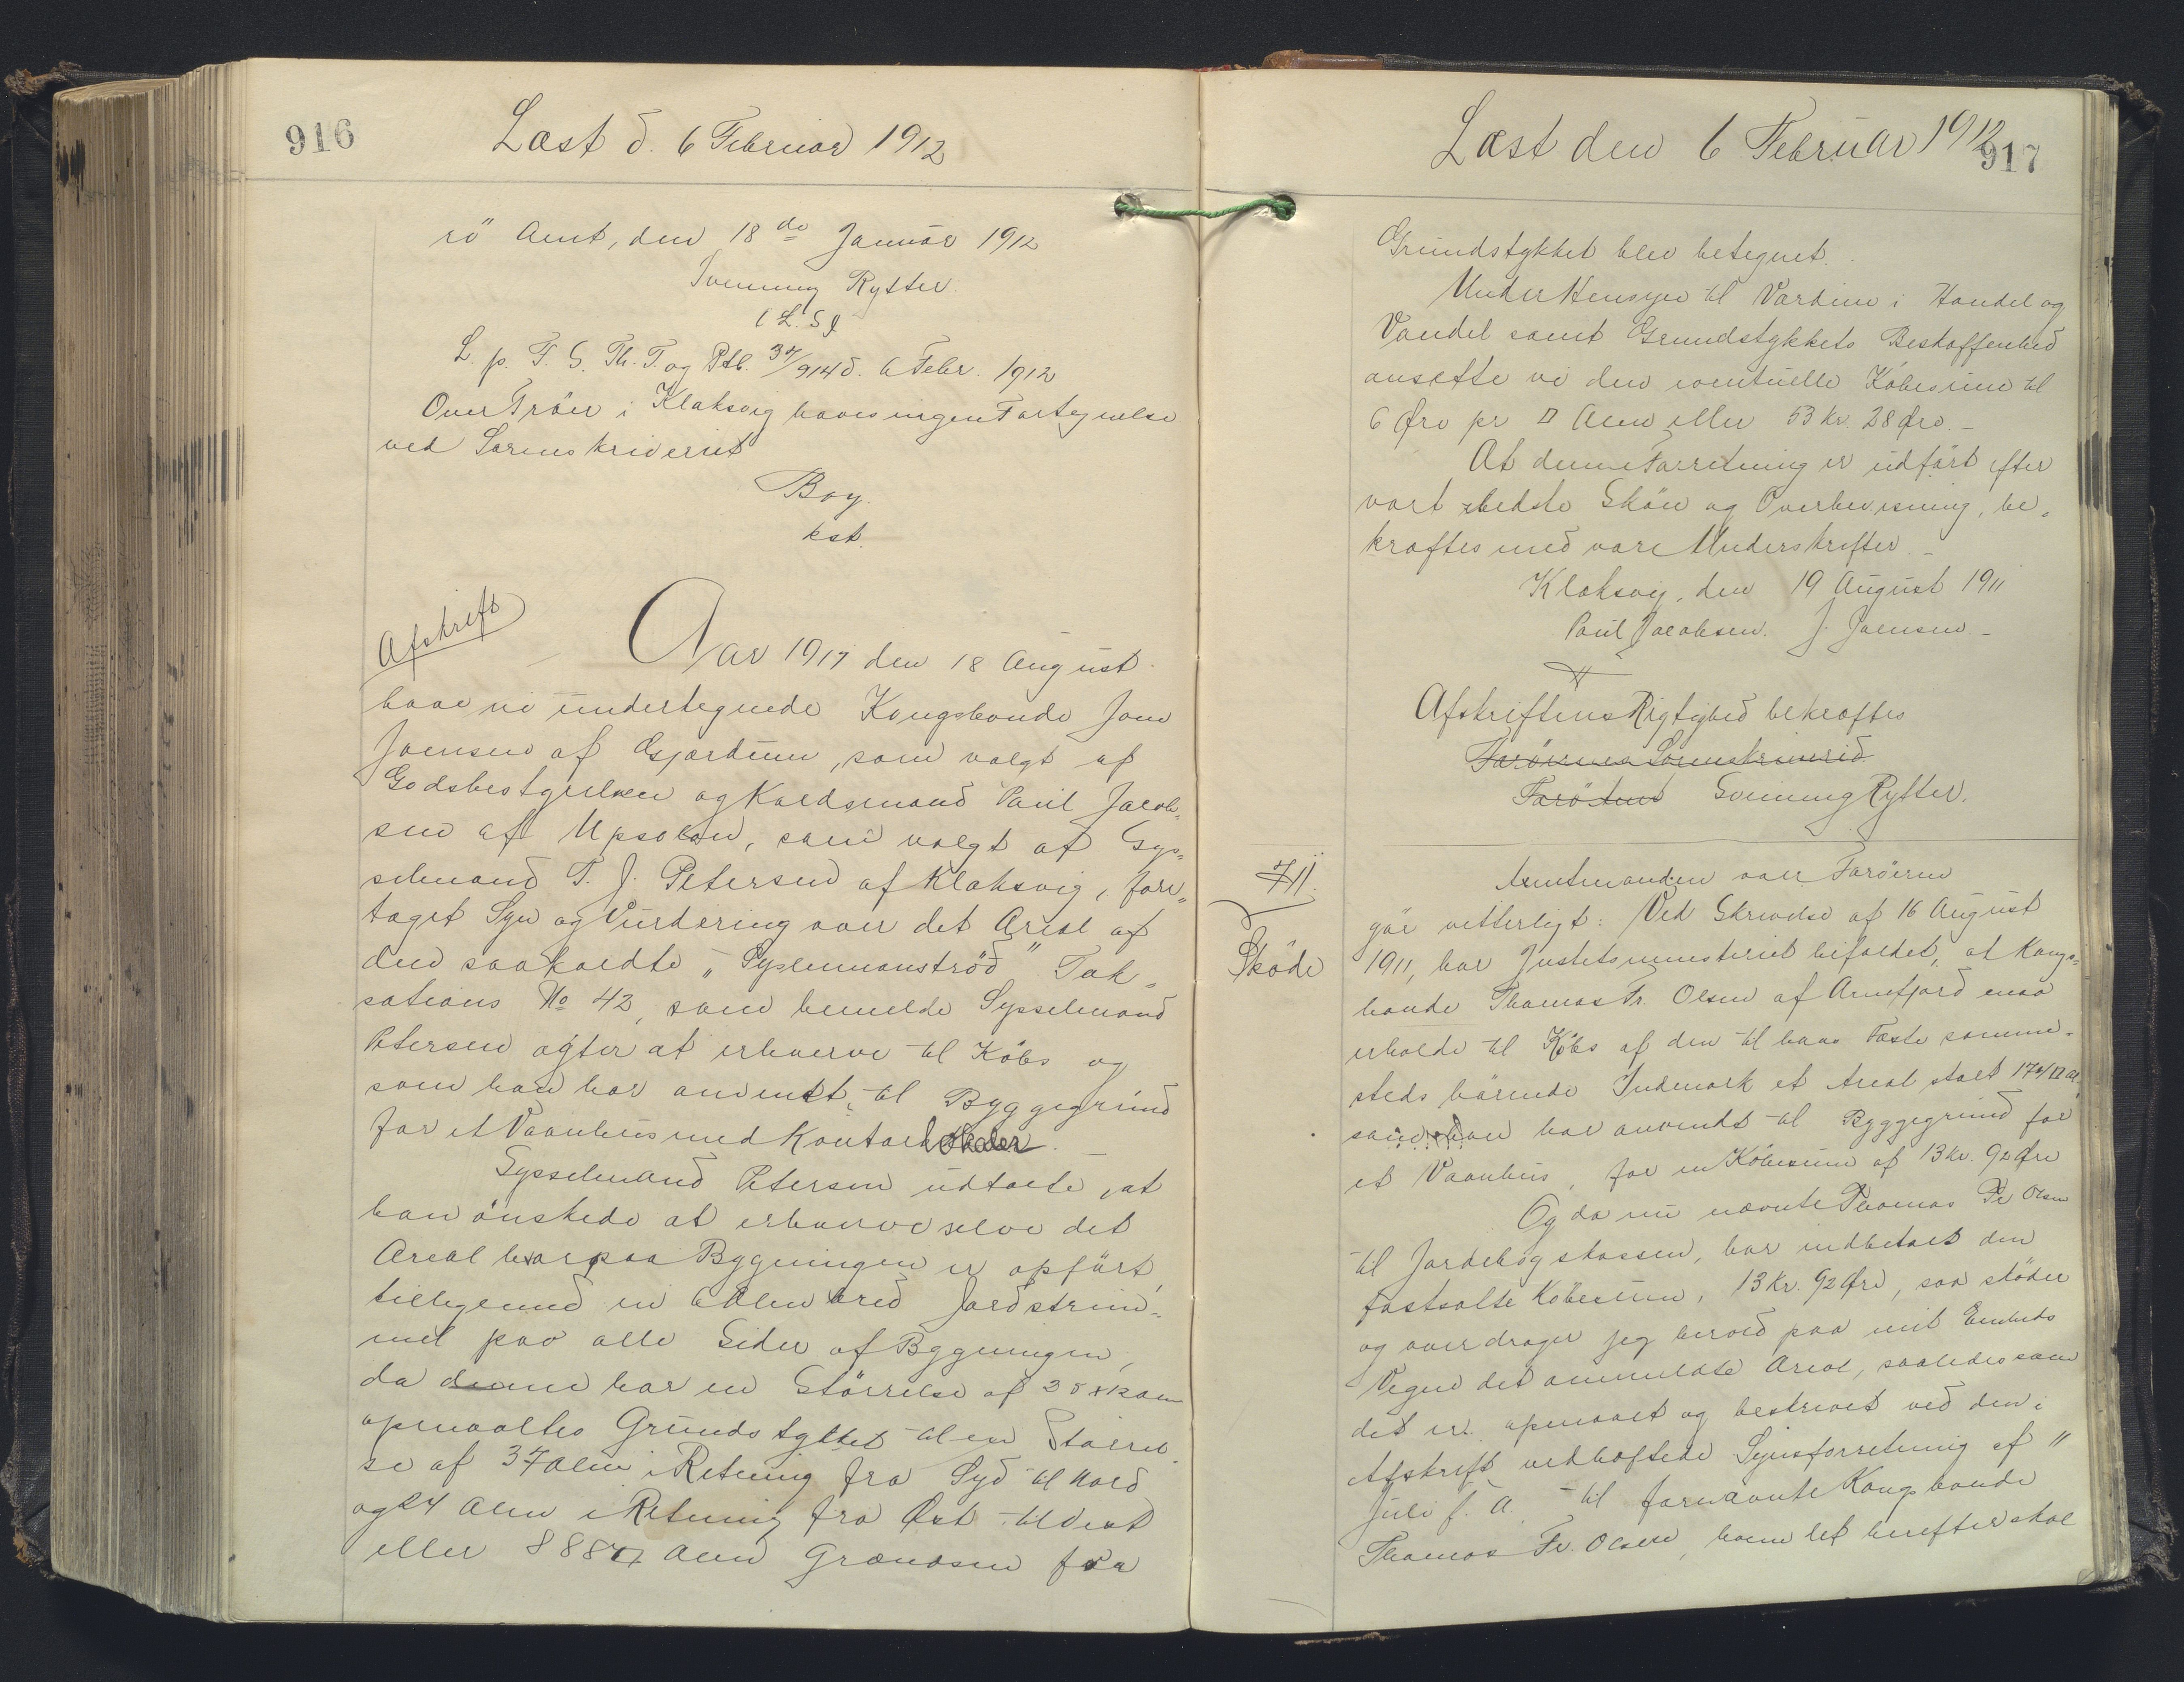 916
Læst d. 6 Februar 1912
rö Amt, den 18de Januar 1912
Svenning Rytter.
(L. S.)
L. p. F. S. Th. T. og Ptb. 37/914 d. 6 Febr. 1912
Over Tröer i Klaksvig haves ingen Fortegnelse
ved Sorenskriveriet
Boy.
kst.
Afskrift
Aar 1911 den 18 August
have vi undertegnede Kongsbonde Joen
Joensen af Gjærdum, som valgt af
Godsbestyrelsen og Kaldsmand Paul Jacob-
sen af Upsolen, som valgt af Sys-
selmand T. J. Petersen af Klaksvig, fore-
taget Syn og Vurdering over det Areal af
den saakaldte "Sysselmanströd" Tak-
sations No 42, som bemeldte Sysselmand
Petersen agter at erhverve til Købs og
som han har anvendt til Byggegrund
for et Vaanhus med Kontorlokaler.
Sysselmand Petersen udtalte, at
han önskede at erhverve selve det
Areal hvorpaa Bygningen er opfört,
tilligemed en 6 Alen bred Jordstrim-
mel paa alle Sider af Bygningen,
da denne har en Störrelse af 25 x 12 Alen
opmaaltes Grundstykket til en Störrel-
se af 37 Alen i Retning fra Syd til Nord
og 24 Alen i Retning fra Øst til Vest
eller 888 □ Alen Grændsen for
Læst den 6 Februar 1912
917
Grundstykket blev betegnet.
Under Hensyn til Værdien i Handel og
Vandel samt Grundstykkets Beskaffenhed
ansatte vi den eventuelle Købesum til
6 Øre pr □ Alen eller 53 Kr. 28 Øre. –
At denne Forretning er udført efter
vort bedste Skön og Overbevisning, be-
kræftes med vore Underskrifter. –
Klaksvig, den 19 August 1911
Paul Jacobsen. J. Joensen –
Afskriftens Rigtighed bekræftes
Færöernes Sorenskriveri
Færö Amt Svenning Rytter.
711.
Sköde
Amtmanden over Færöerne
gör vitterligt: Ved Skrivelse af 16 August
1911, har Justitsministeriet bifaldet, at Kongs-
bonde Thomas Fr. Olsen af Arnefjord maa
erholde til Købs af den til hans Fæste samme-
steds hörende Indmark et Areal stort 174 □ Al.
som han har anvendt til Byggegrund for
et Vaanhus, for en Købesum af 13 kr. 92 Øre
Og da nu nævnte Thomas Fr. Olsen
til Jordebogskassen, har indbetalt den
fastsatte Købesum, 13 Kr. 92 Øre, saa sköder
og overdrager jeg herved paa mit Embeds
Vegne det ommeldte Areal, saaledes som
det er opmaalt og beskrevet ved den i
Afskrift vedhæftede Synsforretning af 11
Juli f. A. til fornævnte Kongsbonde
Thomas Fr. Olsen, hvem det herefter skal